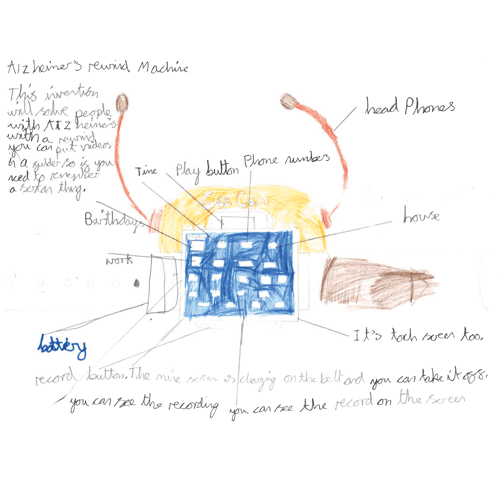 Alzheimer's rewind Machine
This invention
will solve people
with Alzheimers
with a rewind
you can put videos
in a
need to remember
a serten thing.
head Phones
Time
Play button
Phone numbers
Barithdays
house
work
battery
It's toch screen too.
record button. The mine screen is charging on the belt and you can take it off.
you can see the recording
you can see the record on the screen